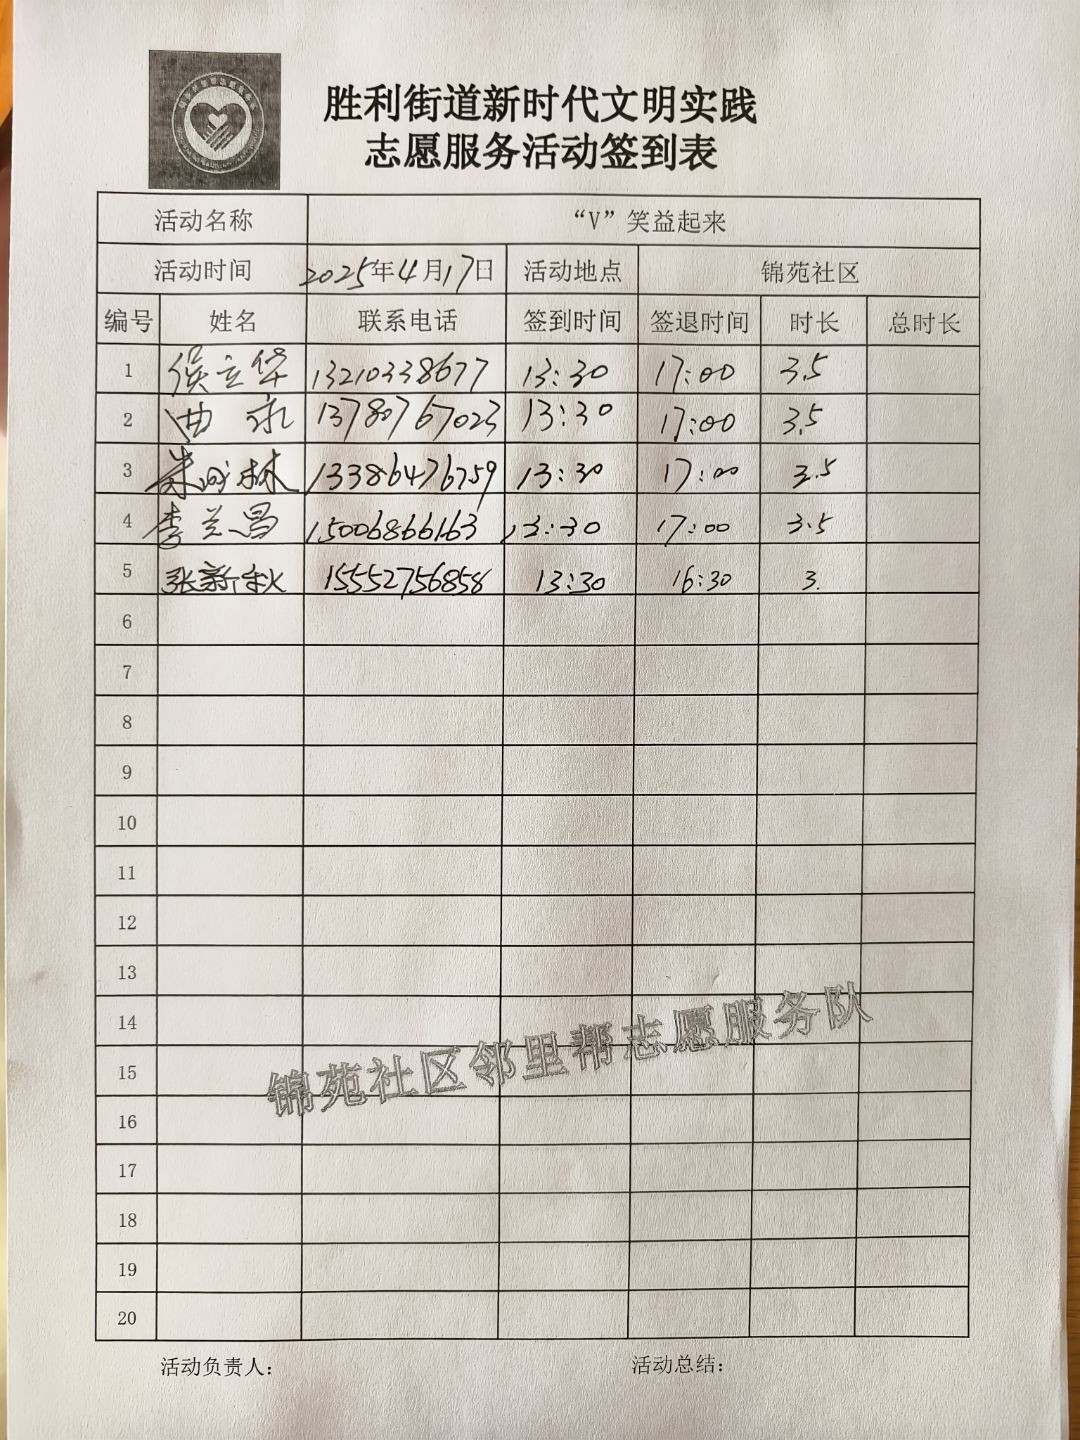 胜利街道新时代文明实践
志愿服务活动签到表
活动名称 “V”笑益起来
活动时间 2025年4月17日 活动地点 锦苑社区
编号 姓名 联系电话 签到时间 签退时间 时长 总时长
1 侯立华 13210338677 13:30 17:00 3.5
2 曲永 13780767023 13:30 17:00 3.5
3 朱 林 13386476759 13:30 17:00 3.5
4 李兰昌 15006866163 13:30 17:00 3.5
5 张新秋 15552756858 13:30 16:30 3.
6
7
8
9
10
11
12
13
14
锦苑社区邻里帮志愿服务队
15
16
17
18
19
20
活动负责人: 活动总结: